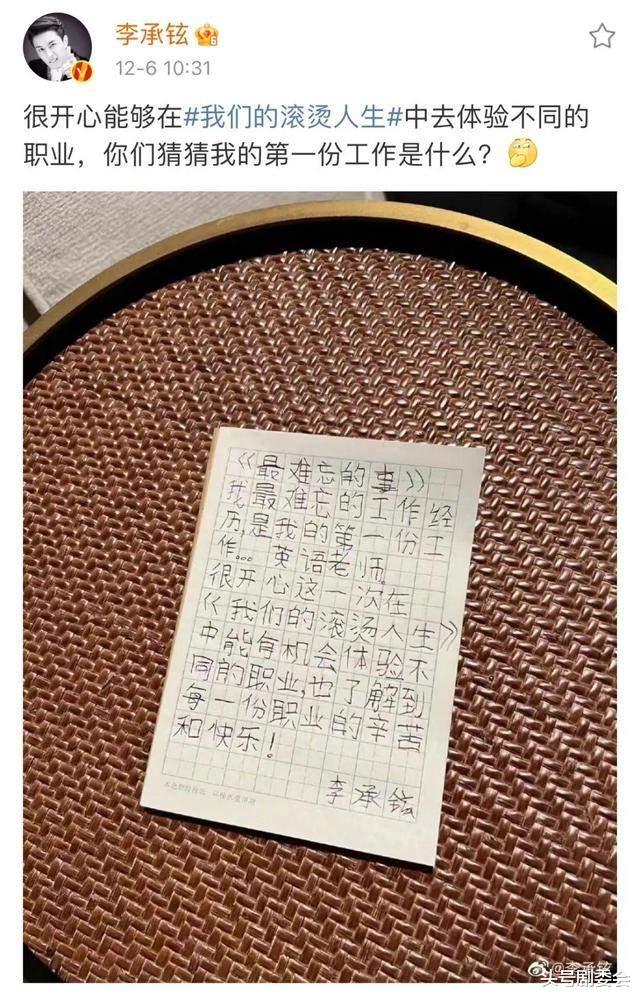 李承铉
12-6 10:31
很开心能够在#我们的滚烫人生#中去体验不同的
职业，你们猜猜我的第一份工作是什么？
《最难忘的事》
我最难忘的工作经
历,是我的第一份工
作... 英语老师,
很开心这一次在
《我们的滚烫人生》
中能有机会体验不
同的职业,也了解到
每一份职业的辛苦
和快乐!
李承铉
@李承铉
头号剧委会